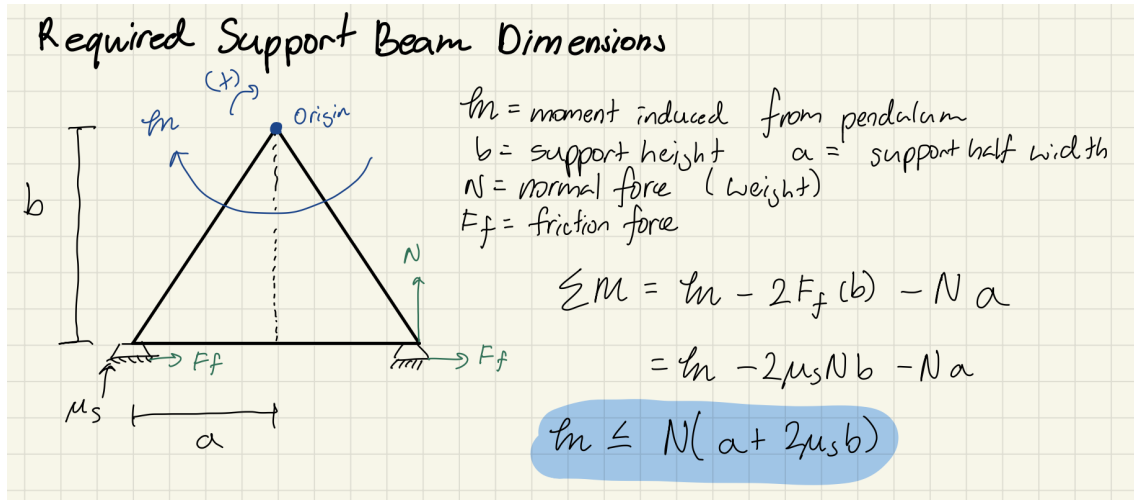 Required Support Beam Dimensions
(+)
m
Origin
b
N
Ff
Ff
μs
a
m = moment induced from pendalum
b = support height a = support half width
N = normal force (weight)
Ff = friction force
ΣM = m - 2Ff(b) - Na
= m - 2μsNb - Na
m ≤ N(a + 2μsb)